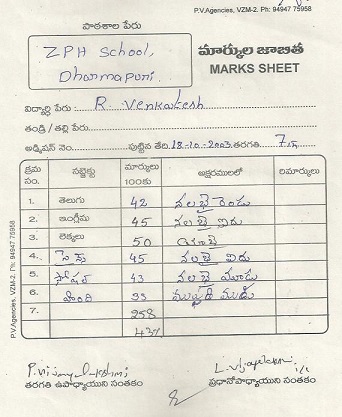 P.V.Agencies, VZM-2. Ph: 94947 75958
పాఠశాల పేరు
ZPH School,
Dharmapuri.
మార్కుల జాబితా
MARKS SHEET
విద్యార్థి పేరు: R Venkatesh
తండ్రి / తల్లి పేరు
అడ్మిషన్ నెం. పుట్టిన తేది 18-10-2003 తరగతి 7th
క్రమ సం. సబ్జెక్టు మార్కులు 100కు అక్షరములలో రిమార్కులు
1. తెలుగు 42 నలభై రెండు
2. ఇంగ్లీషు 45 నలభై ఐదు
3. లెక్కలు 50 యాభై
4. సైన్స్ 45 నలభై ఐదు
5. సోషల్ 43 నలభై మూడు
6. హిందీ 33 ముప్పది మూడు
7. 258
43%
P.V.Agencies, VZM-2. Ph: 94947 75958
తరగతి ఉపాధ్యాయుని సంతకం
ప్రధానోపాధ్యాయుని సంతకం